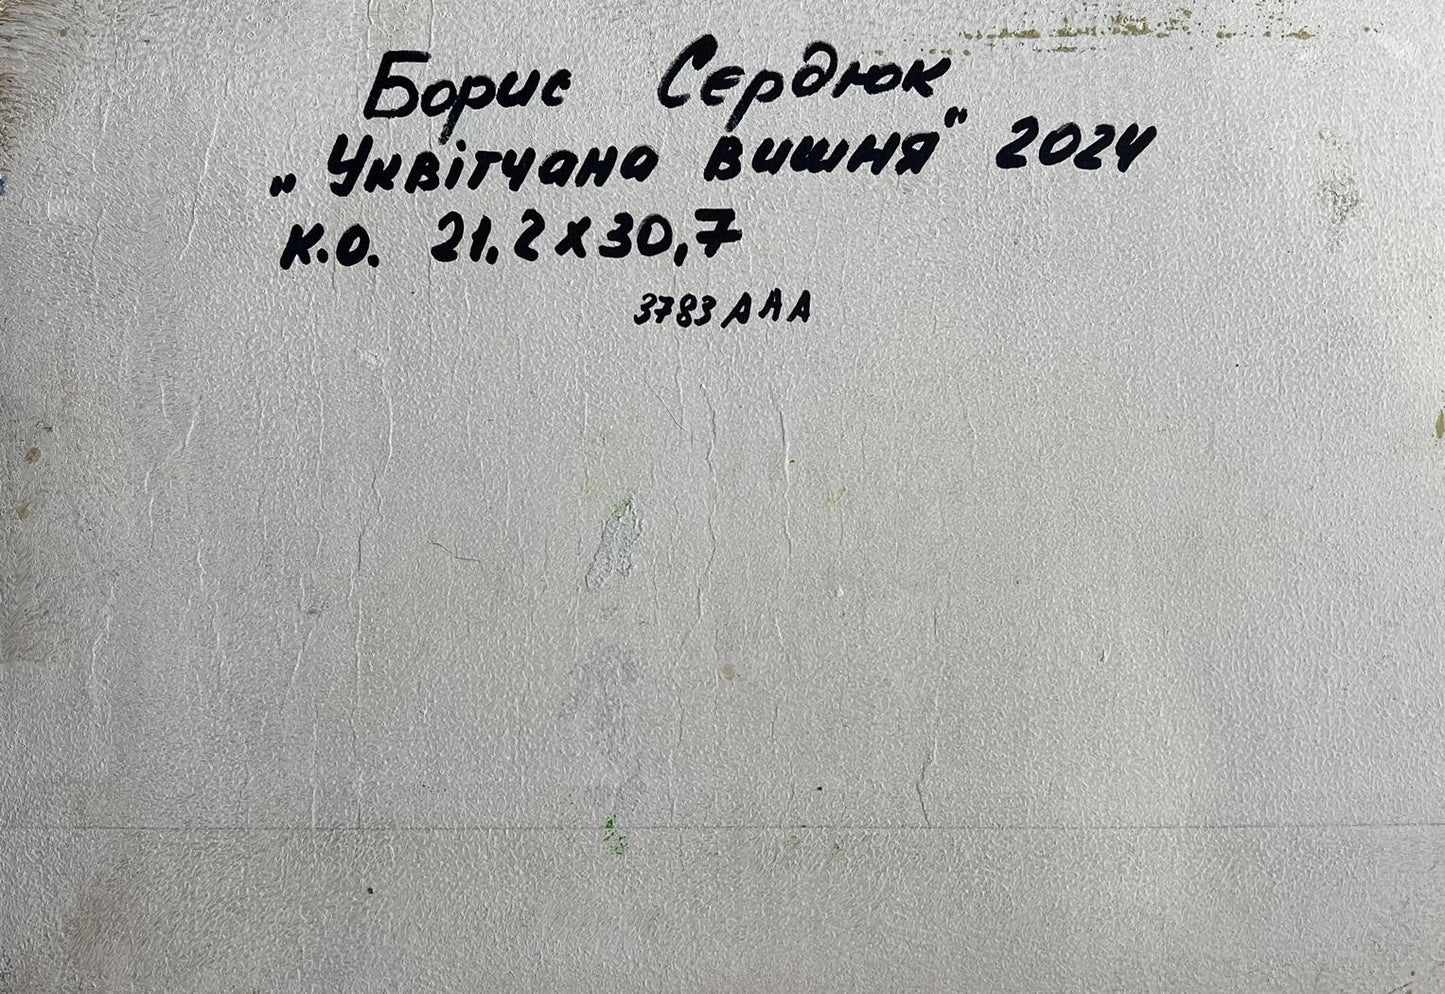 Борис Сердюк
„Уквітчана вишня" 2024
к.о. 21.2 x 30,7
3783 ААА